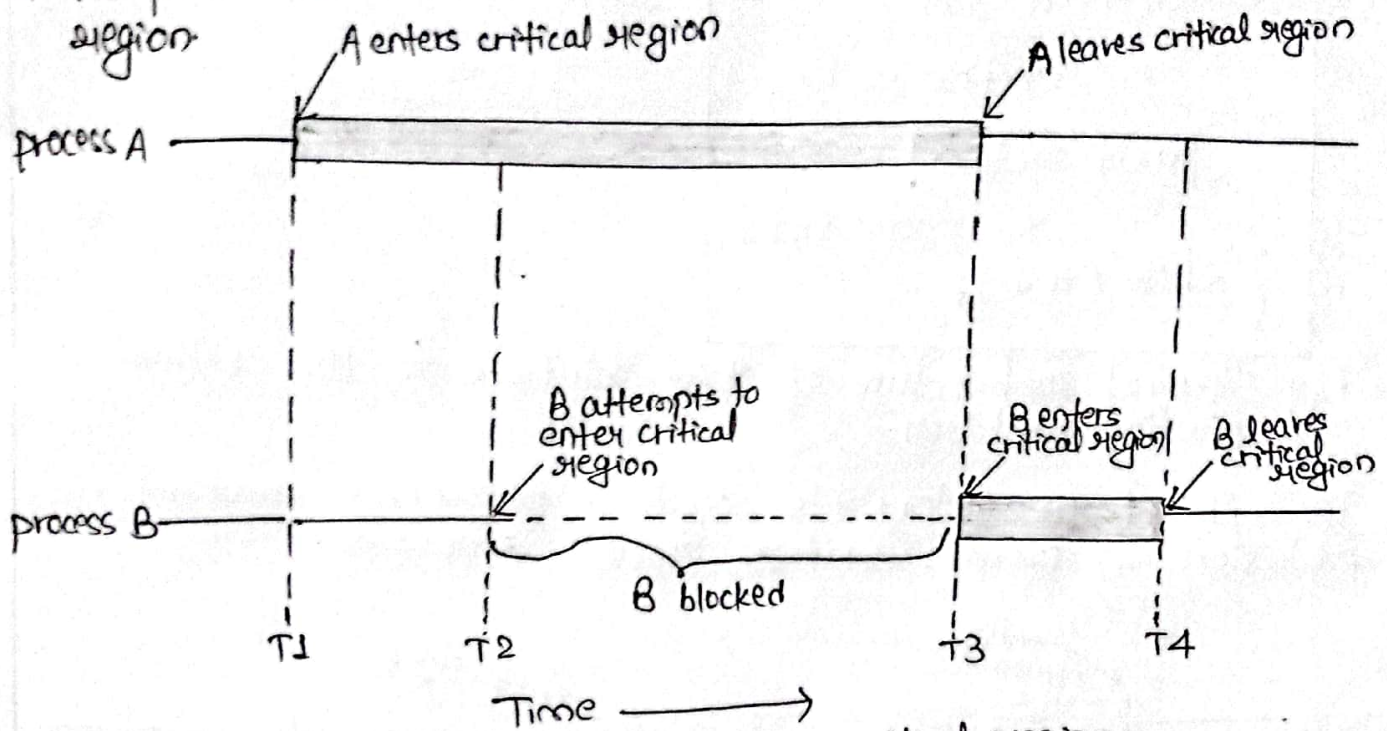 region
A enters critical region
A leaves critical region
process A
B attempts to
enter critical
region
B enters
critical region
B leaves
critical
region
process B
B blocked
T1
T2
T3
T4
Time